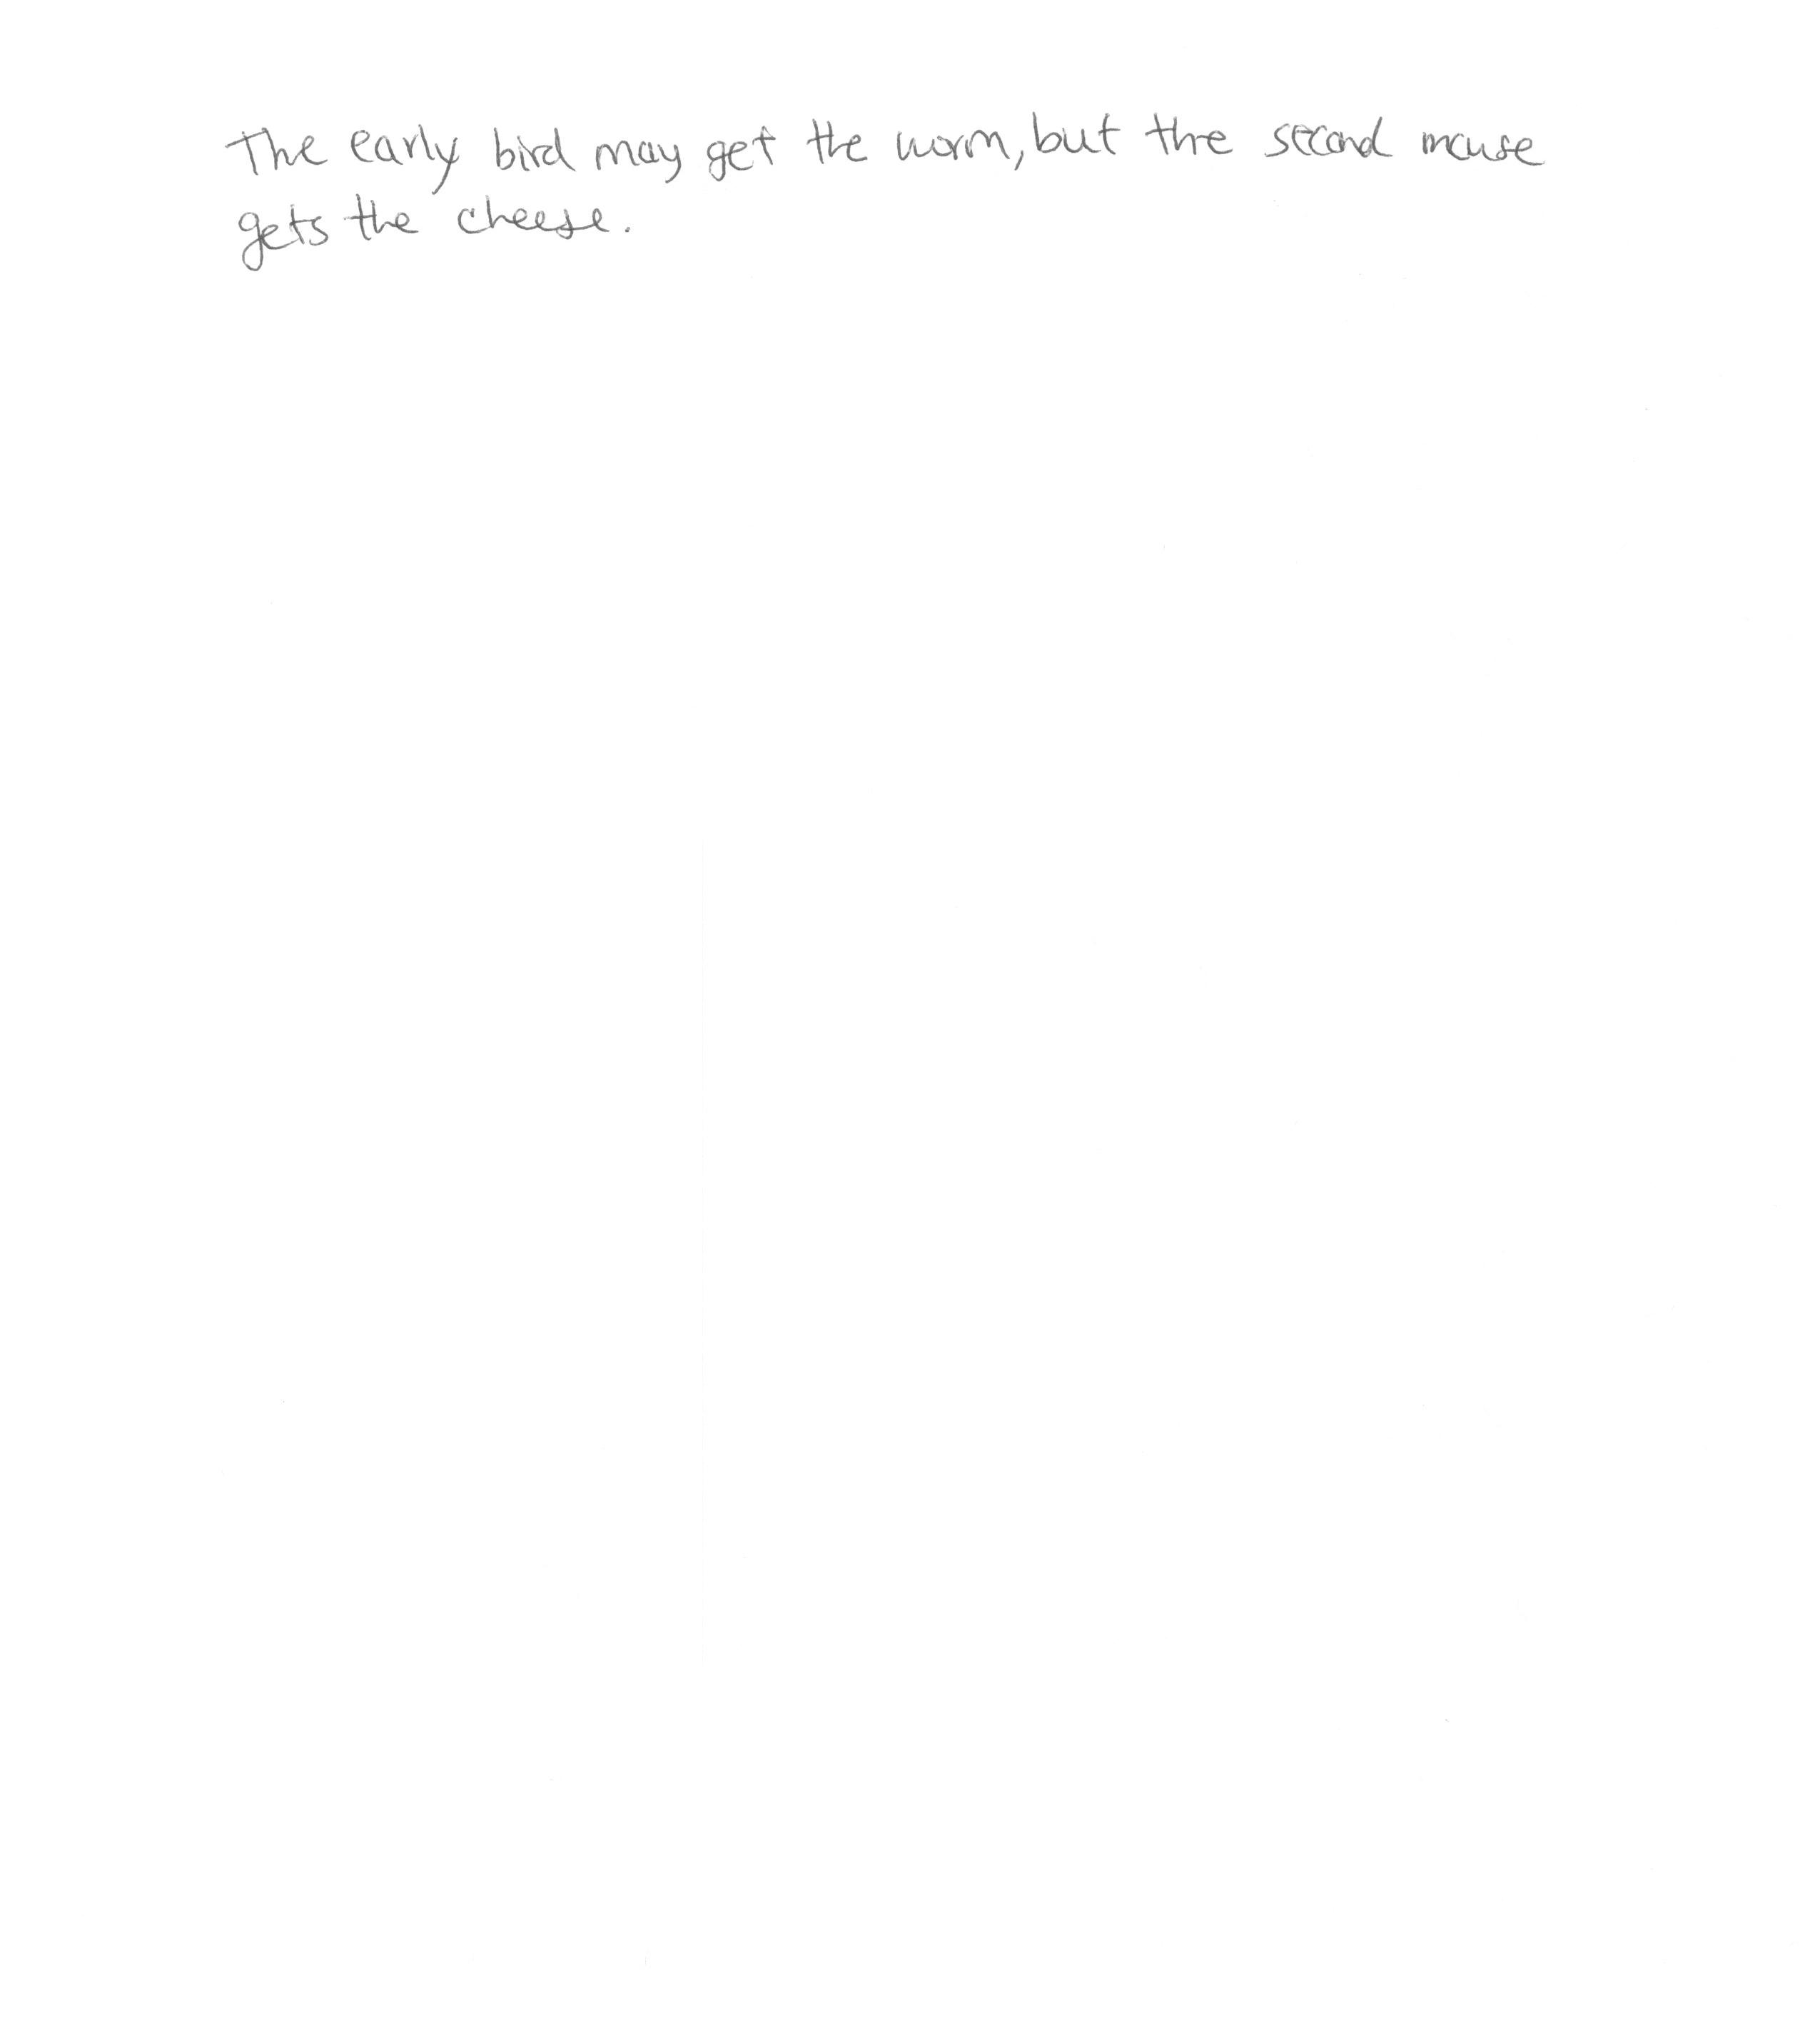 The early bird may get the worm, but the second mouse
gets the cheese.